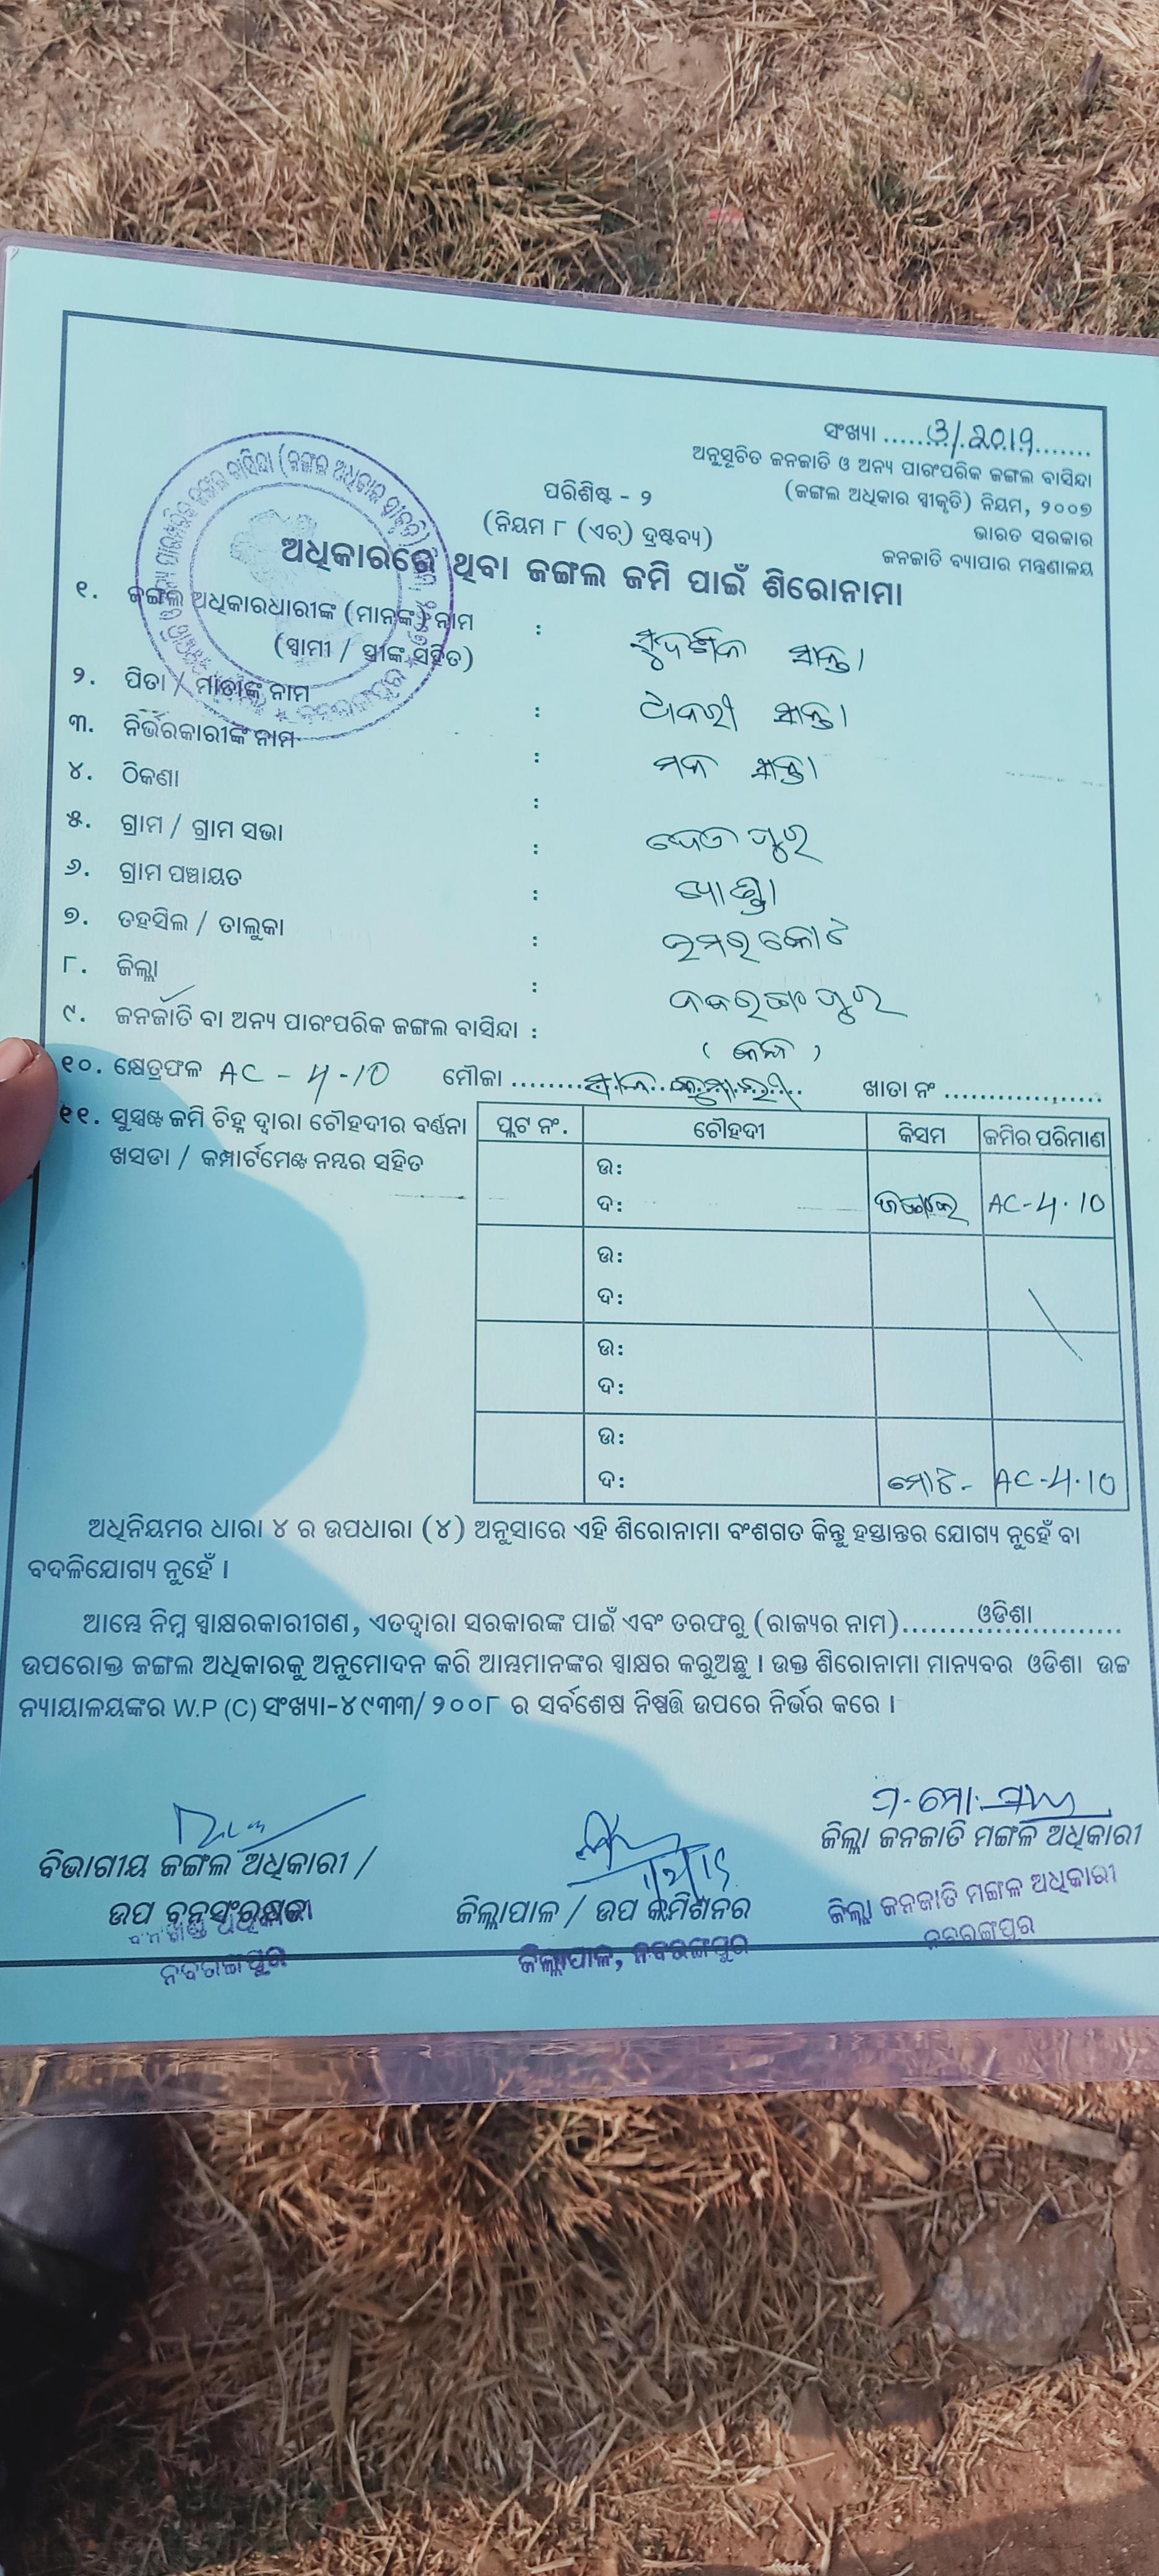 ସଂଖ୍ୟା ......3/.2019.......
ଅନୁସୂଚିତ ଜନଜାତି ଓ ଅନ୍ୟ ପାରଂପରିକ ଜଙ୍ଗଲ ବାସିନ୍ଦା
(ଜଙ୍ଗଲ ଅଧିକାର ସ୍ୱୀକୃତି) ନିୟମ, ୨୦୦୭
ଭାରତ ସରକାର
ଜନଜାତି ବ୍ୟାପାର ମନ୍ତ୍ରଣାଳୟ
ପରିଶିଷ୍ଟ - ୨
(ନିୟମ ୮ (ଏଚ୍) ଦ୍ରଷ୍ଟବ୍ୟ)
ଅଧିକାରରେ ଥିବା ଜଙ୍ଗଲ ଜମି ପାଇଁ ଶିରୋନାମା
୧. ଜଙ୍ଗଲ ଅଧିକାରଧାରୀଙ୍କ (ମାନଙ୍କ) ନାମ :
(ସ୍ୱାମୀ / ସ୍ତ୍ରୀଙ୍କ ସହିତ)
୨. ପିତା / ମାତାଙ୍କ ନାମ :
୩. ନିର୍ଭରକାରୀଙ୍କ ନାମ :
୪. ଠିକଣା :
୫. ଗ୍ରାମ / ଗ୍ରାମ ସଭା :
୬. ଗ୍ରାମ ପଞ୍ଚାୟତ :
୭. ତହସିଲ / ତାଲୁକା : ଉମରକୋଟ
୮. ଜିଲ୍ଲା : ନବରଙ୍ଗପୁର
୯. ଜନଜାତି ବା ଅନ୍ୟ ପାରଂପରିକ ଜଙ୍ଗଲ ବାସିନ୍ଦା :
୧୦. କ୍ଷେତ୍ରଫଳ AC - 4 - 10 ମୌଜା ........ ଖାତା ନଂ ..................
୧୧. ସୁସ୍ପଷ୍ଟ ଜମି ଚିହ୍ନ ଦ୍ୱାରା ଚୌହଦୀର ବର୍ଣ୍ଣନା
ଖସଡା / କମ୍ପାର୍ଟମେଣ୍ଟ ନମ୍ବର ସହିତ
ପ୍ଲଟ ନଂ. ଚୌହଦୀ କିସମ ଜମିର ପରିମାଣ
ଉ:
ଦ: ଜଙ୍ଗଲ AC-4.10
ଉ:
ଦ:
ଉ:
ଦ:
ଉ:
ଦ: ମୋଟ- AC-4.10
ଅଧିନିୟମର ଧାରା ୪ ର ଉପଧାରା (୪) ଅନୁସାରେ ଏହି ଶିରୋନାମା ବଂଶଗତ କିନ୍ତୁ ହସ୍ତାନ୍ତର ଯୋଗ୍ୟ ନୁହେଁ ବା
ବଦଳିଯୋଗ୍ୟ ନୁହେଁ ।
ଆମ୍ଭେ ନିମ୍ନ ସ୍ୱାକ୍ଷରକାରୀଗଣ, ଏତଦ୍ୱାରା ସରକାରଙ୍କ ପାଇଁ ଏବଂ ତରଫରୁ (ରାଜ୍ୟର ନାମ)........ଓଡିଶା...........
ଉପରୋକ୍ତ ଜଙ୍ଗଲ ଅଧିକାରକୁ ଅନୁମୋଦନ କରି ଆମ୍ଭମାନଙ୍କର ସ୍ୱାକ୍ଷର କରୁଅଛୁ । ଉକ୍ତ ଶିରୋନାମା ମାନ୍ୟବର ଓଡିଶା ଉଚ୍ଚ
ନ୍ୟାୟାଳୟଙ୍କର W.P (C) ସଂଖ୍ୟା-୪୯୩୩/ ୨୦୦୮ ର ସର୍ବଶେଷ ନିଷ୍ପତ୍ତି ଉପରେ ନିର୍ଭର କରେ ।
ଜିଲ୍ଲା ଜନଜାତି ମଙ୍ଗଳ ଅଧିକାରୀ
ବିଭାଗୀୟ ଜଙ୍ଗଲ ଅଧିକାରୀ /
ଉପ ବନସଂରକ୍ଷକ
ଜିଲ୍ଲାପାଳ / ଉପ କମିଶନର
ଜିଲ୍ଲା ଜନଜାତି ମଙ୍ଗଳ ଅଧିକାରୀ
ନବରଙ୍ଗପୁର
ଜିଲ୍ଲାପାଳ, ନବରଙ୍ଗପୁର
ନବରଙ୍ଗପୁର